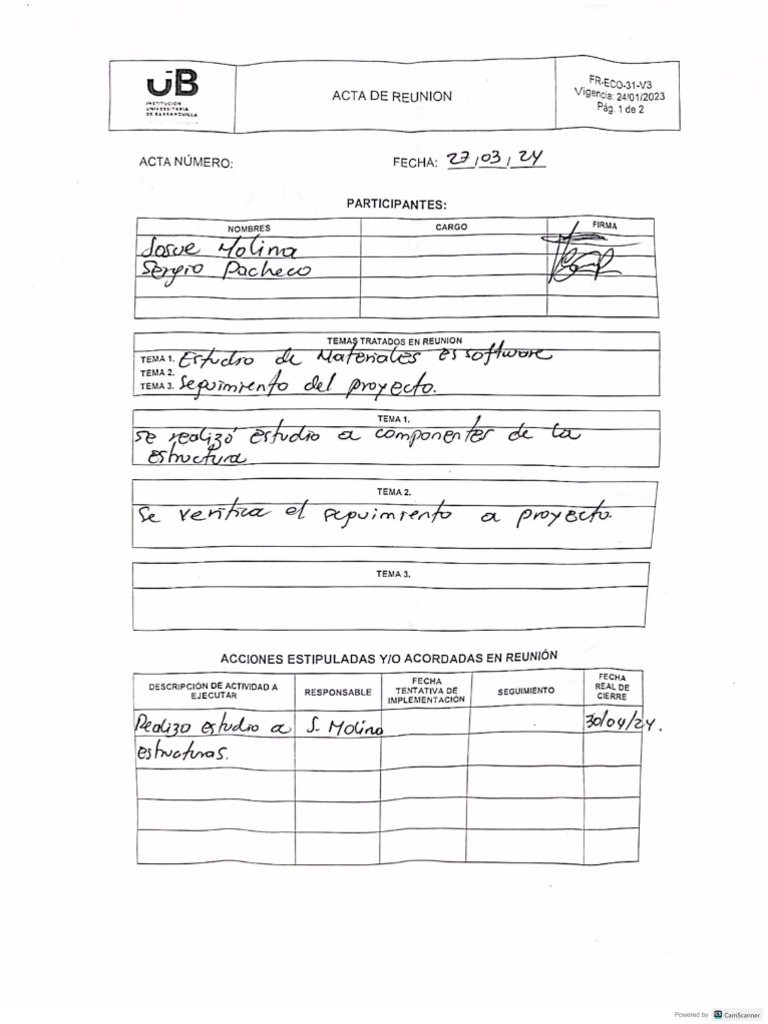 ŪB
INSTITUCIÓN
UNIVERSITARIA
DE BARRANQUILLA
ACTA DE REUNION
FR-ECO-31-V3
Vigencia: 24/01/2023
Pág. 1 de 2
ACTA NÚMERO:
FECHA: 27/03/24
PARTICIPANTES:
NOMBRES CARGO FIRMA
Josue Molina
Sergio Pacheco
TEMAS TRATADOS EN REUNION
TEMA 1. Estudio de Materiales es software
TEMA 2.
TEMA 3. Seguimiento del proyecto.
TEMA 1.
Se realizó estudio a componentes de la
estructura
TEMA 2.
Se verifica el seguimiento a proyecto.
TEMA 3.
ACCIONES ESTIPULADAS Y/O ACORDADAS EN REUNIÓN
DESCRIPCIÓN DE ACTIVIDAD A
EJECUTAR
RESPONSABLE
FECHA
TENTATIVA DE
IMPLEMENTACIÓN
SEGUIMIENTO
FECHA
REAL DE
CIERRE
Realizo estudio a J. Molina 30/04/24.
estructuras.
Powered by CS CamScanner